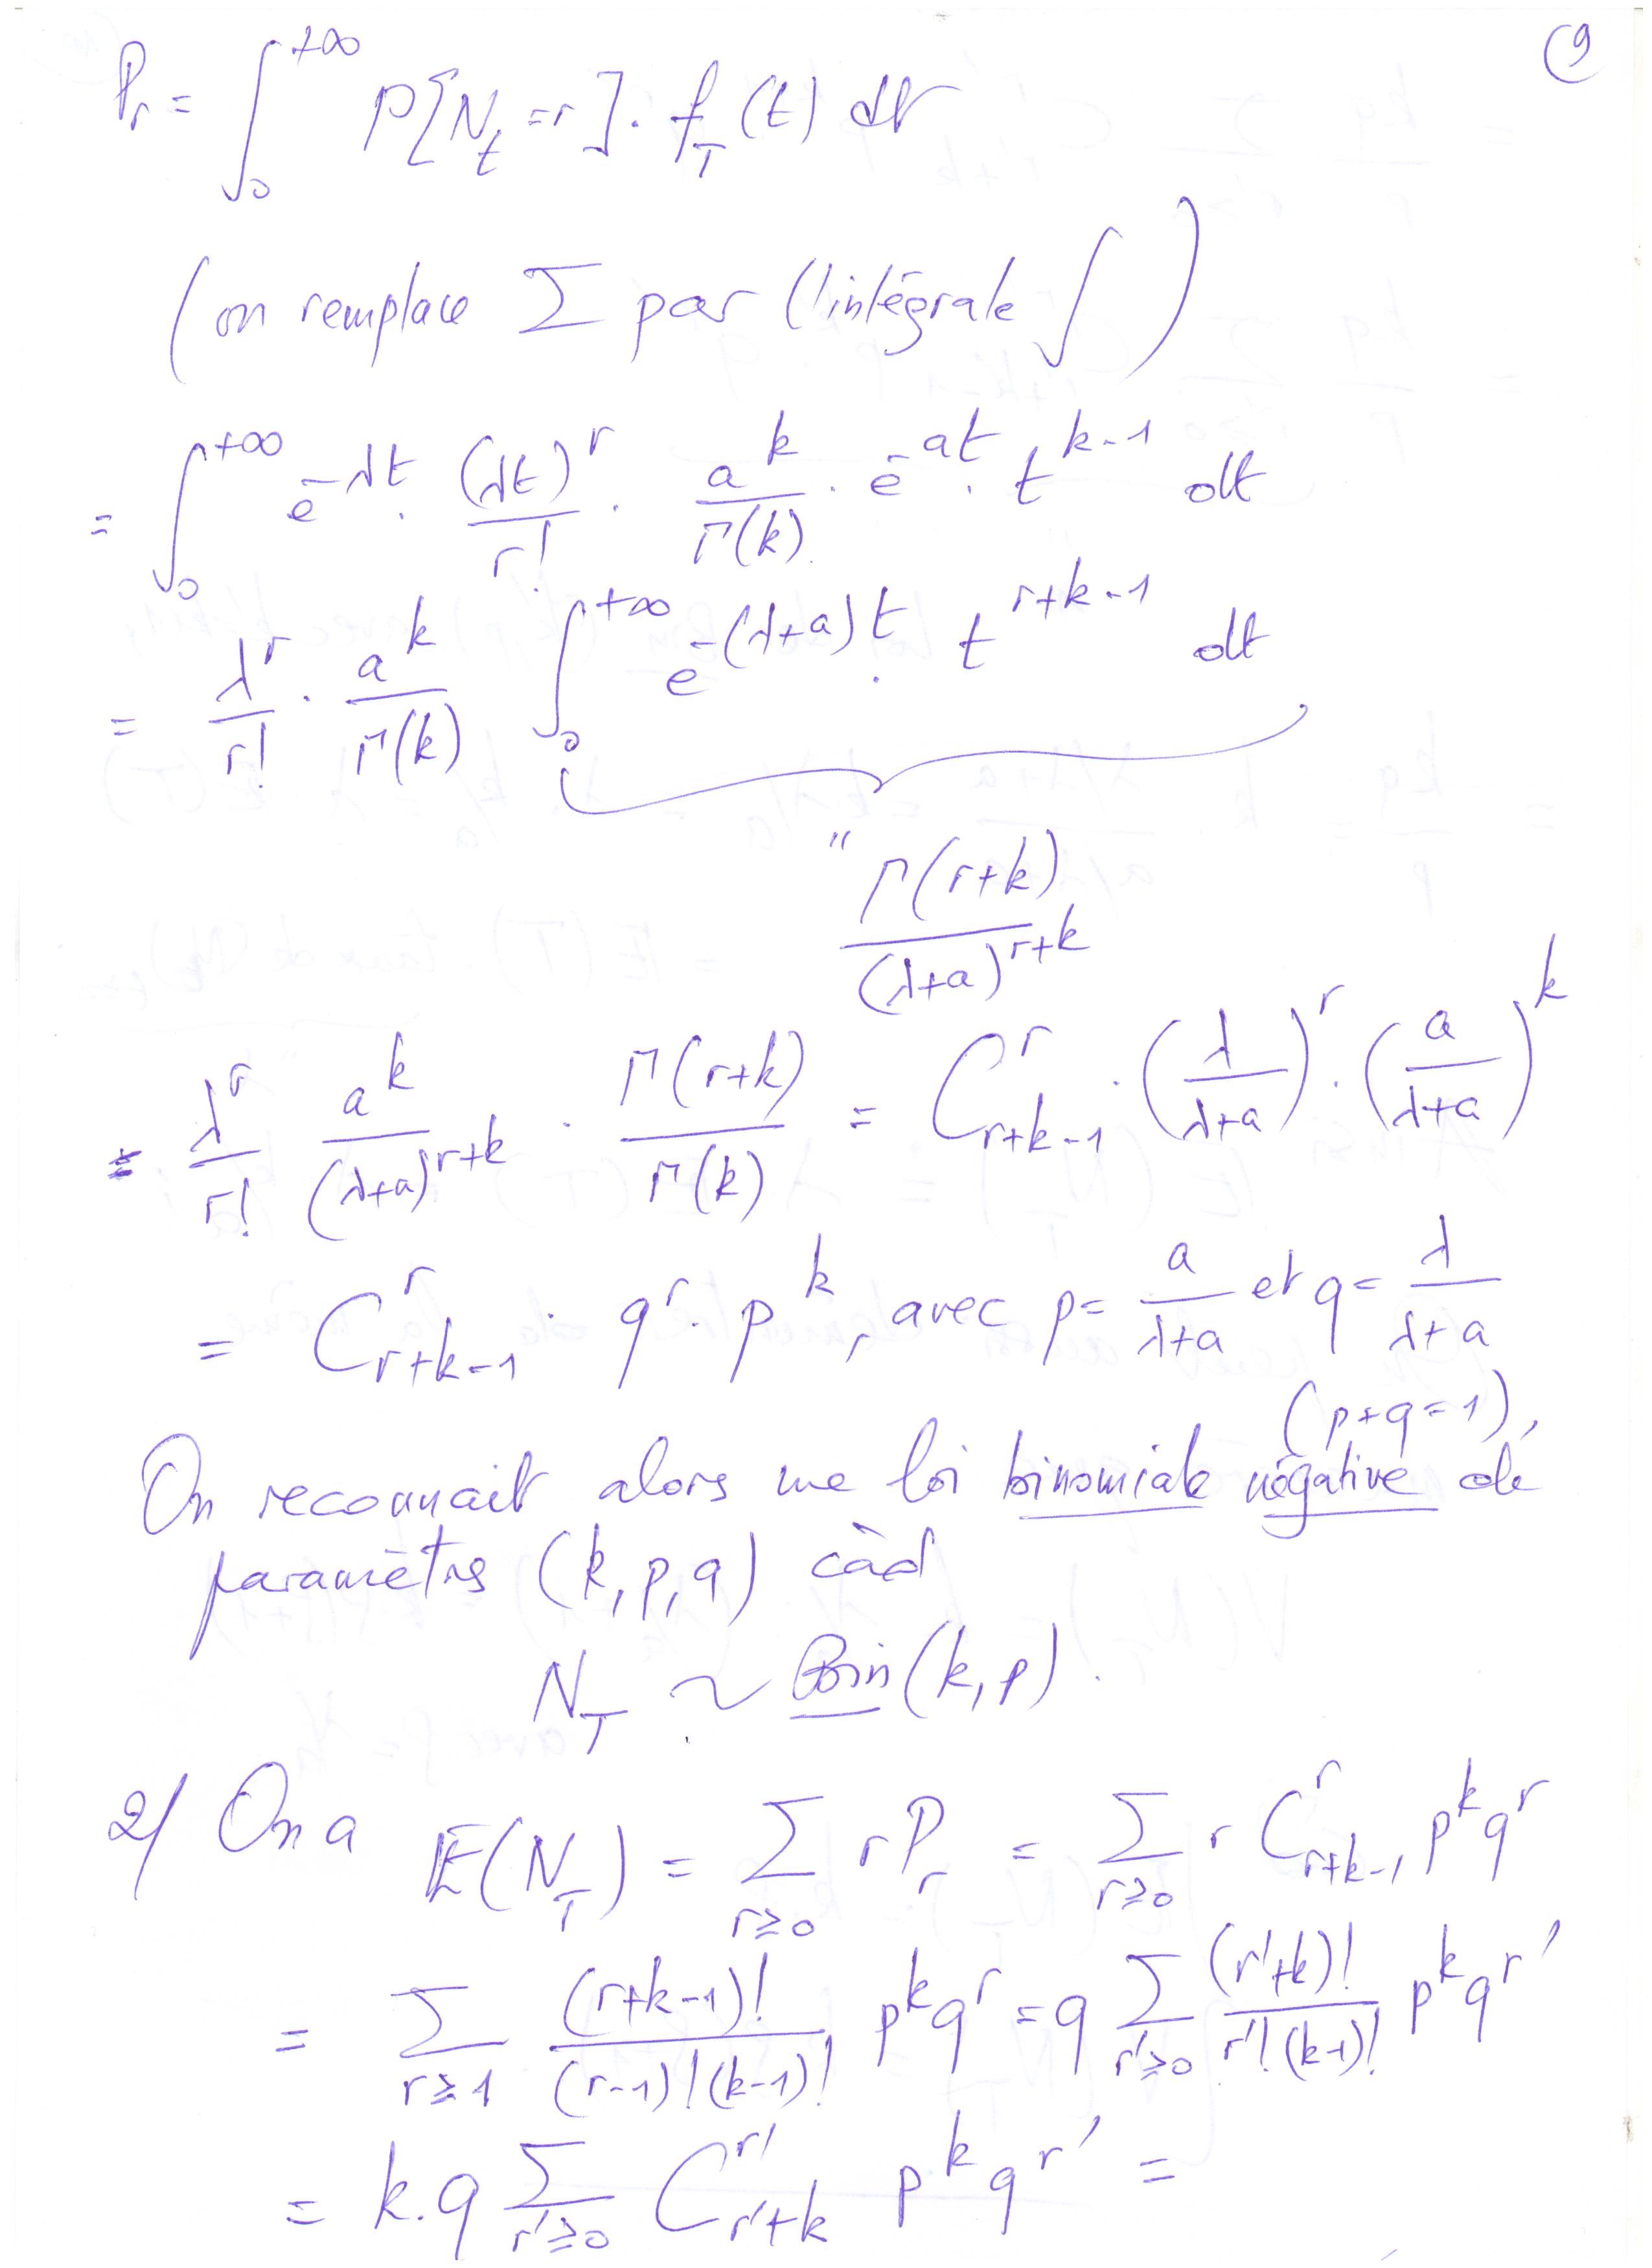 (9
P_r = ∫_0^{+∞} P[N_t = r] . f_T(t) dt
(on remplace Σ par l'intégrale ∫)
= ∫_0^{+∞} e^{-λt} . (λt)^r / r! . a^k / Γ(k) . e^{-at} . t^{k-1} dt
= λ^r / r! . a^k / Γ(k) ∫_0^{+∞} e^{-(λ+a)t} . t^{r+k-1} dt
" Γ(r+k) / (λ+a)^{r+k}
= λ^r / r! a^k / (λ+a)^{r+k} . Γ(r+k) / Γ(k) = C_{r+k-1}^r . (λ / (λ+a))^r . (a / (λ+a))^k
= C_{r+k-1}^r . q^r . p^k, avec p = a / (λ+a) et q = λ / (λ+a)
(p+q=1),
On reconnait alors une loi binomiale négative de
paramètres (k, p, q) càd
N_T ~ Bin(k, p).
2/ On a E(N_T) = Σ_{r≥0} r P_r = Σ_{r≥0} r C_{r+k-1}^r p^k q^r
= Σ_{r≥1} (r+k-1)! / (r-1)!(k-1)! p^k q^r = q Σ_{r'≥0} (r'+k)! / r'!(k-1)! p^k q^{r'}
= k.q Σ_{r'≥0} C_{r'+k}^{r'} p^k q^{r'} =